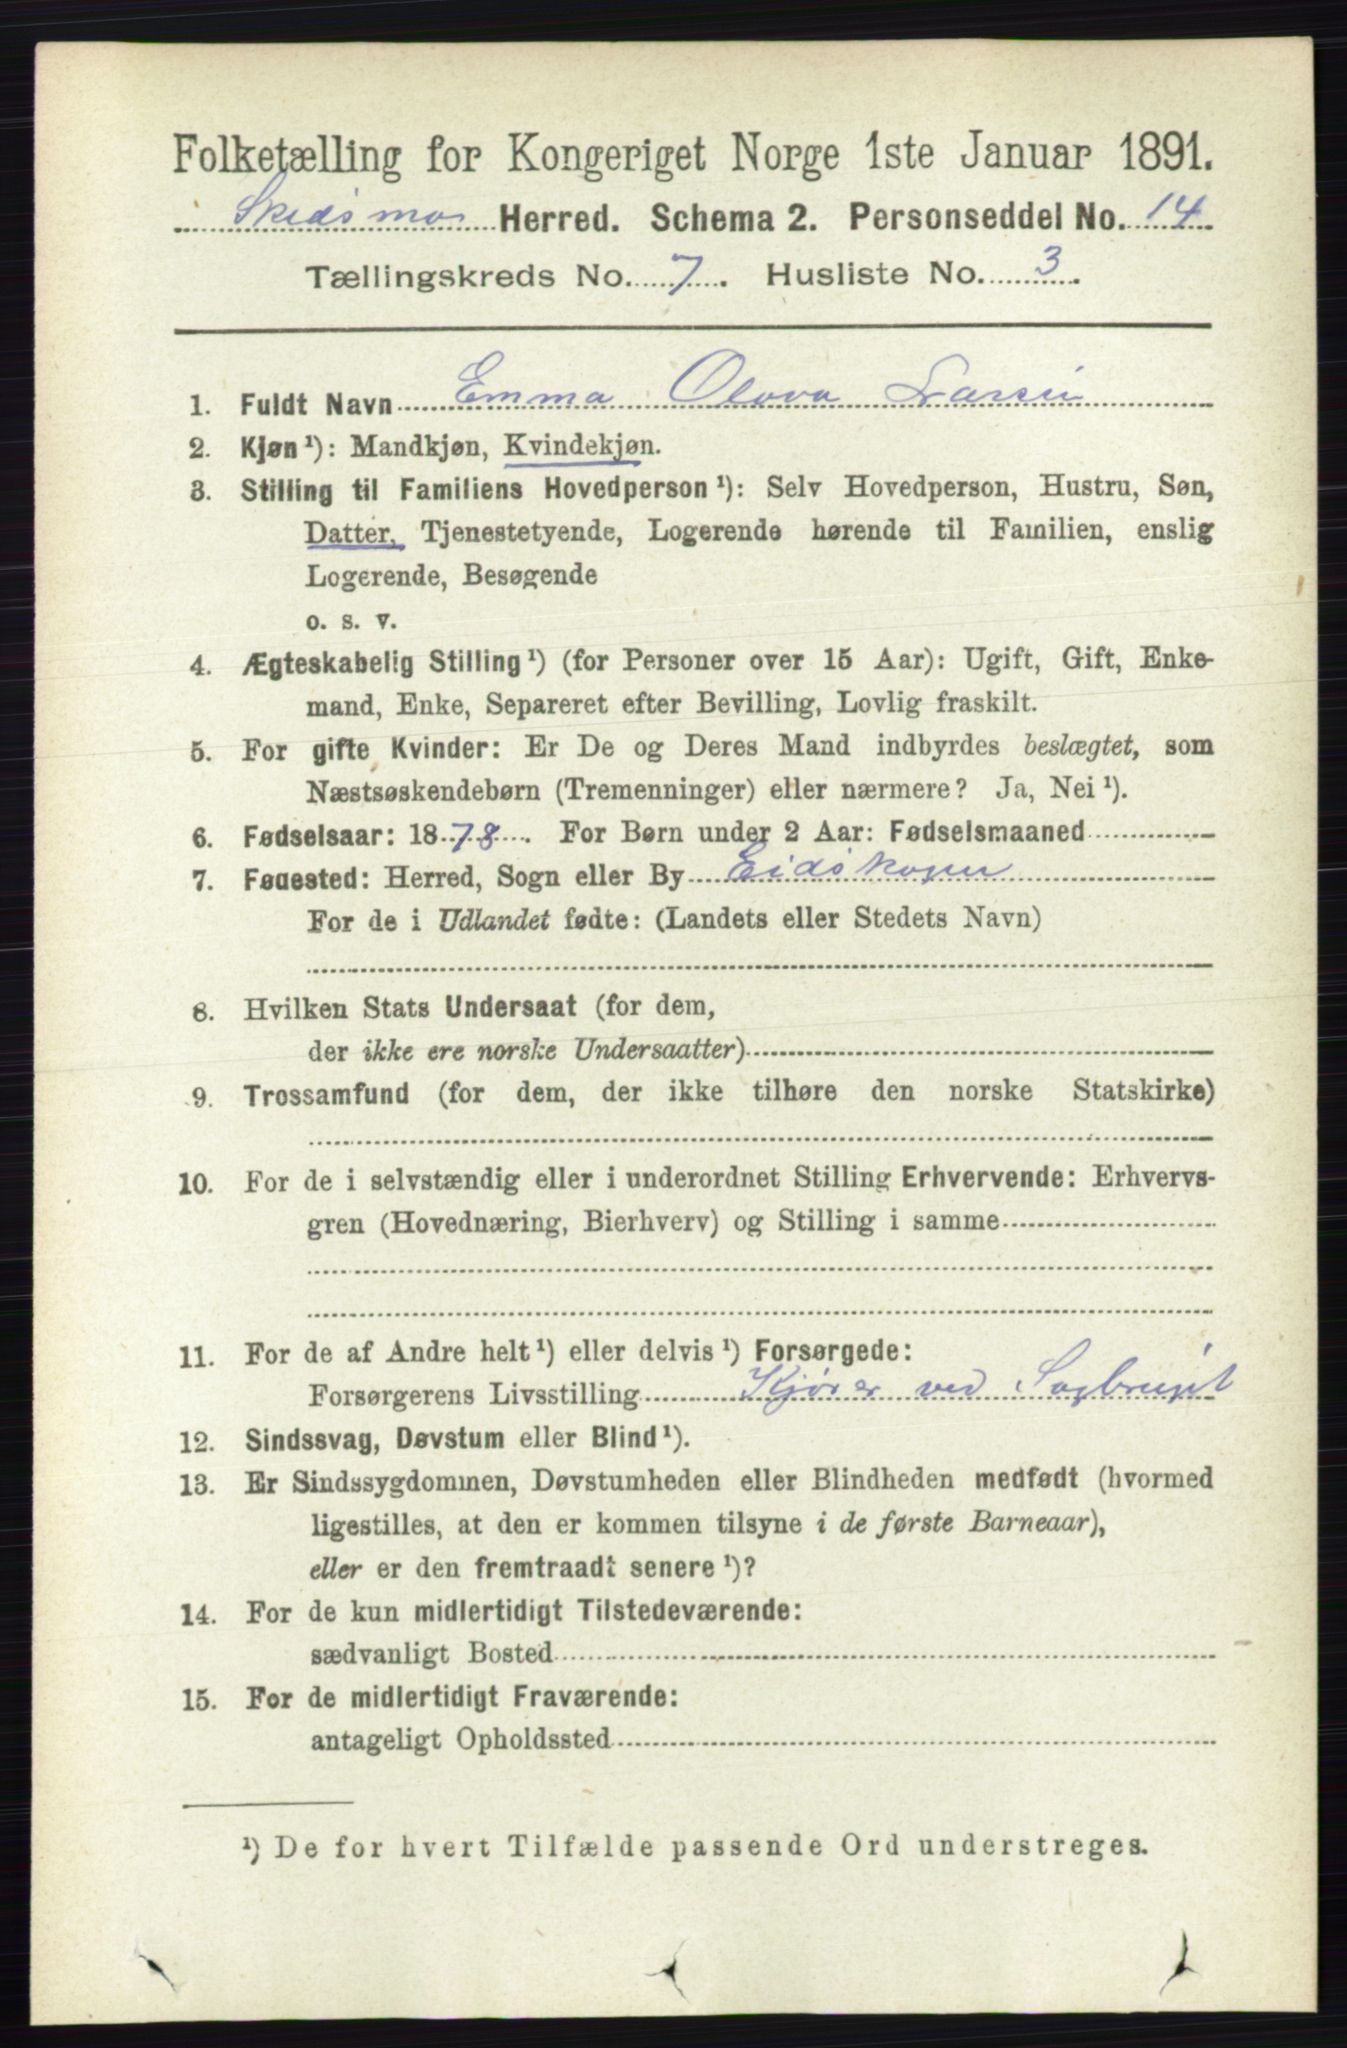 Folketælling for Kongeriget Norge 1ste Januar 1891.
Skedsmo Herred. Schema 2. Personseddel No. 14
Tællingskreds No. 7. Husliste No. 3.
1. Fuldt Navn Emma Olava Larsen
2. Kjøn¹): Mandkjøn, Kvindekjøn.
3. Stilling til Familiens Hovedperson¹): Selv Hovedperson, Hustru, Søn,
Datter, Tjenestetyende, Logerende hørende til Familien, enslig
Logerende, Besøgende
o. s. v.
4. Ægteskabelig Stilling¹) (for Personer over 15 Aar): Ugift, Gift, Enke-
mand, Enke, Separeret efter Bevilling, Lovlig fraskilt.
5. For gifte Kvinder: Er De og Deres Mand indbyrdes beslægtet, som
Næstsøskendebørn (Tremenninger) eller nærmere? Ja, Nei¹).
6. Fødselsaar: 1878. For Børn under 2 Aar: Fødselsmaaned
7. Fødested: Herred, Sogn eller By Eidskogen
For de i Udlandet fødte: (Landets eller Stedets Navn)
8. Hvilken Stats Undersaat (for dem,
der ikke ere norske Undersaatter)
9. Trossamfund (for dem, der ikke tilhøre den norske Statskirke)
10. For de i selvstændig eller i underordnet Stilling Erhvervende: Erhvervs-
gren (Hovednæring, Bierhverv) og Stilling i samme
11. For de af Andre helt¹) eller delvis¹) Forsørgede:
Forsørgerens Livsstilling Kjører ved Sagbruget
12. Sindssvag, Døvstum eller Blind¹).
13. Er Sindssygdommen, Døvstumheden eller Blindheden medfødt (hvormed
ligestilles, at den er kommen tilsyne i de første Barneaar),
eller er den fremtraadt senere¹)?
14. For de kun midlertidigt Tilstedeværende:
sædvanligt Bosted
15. For de midlertidigt Fraværende:
antageligt Opholdssted
¹) De for hvert Tilfælde passende Ord understreges.